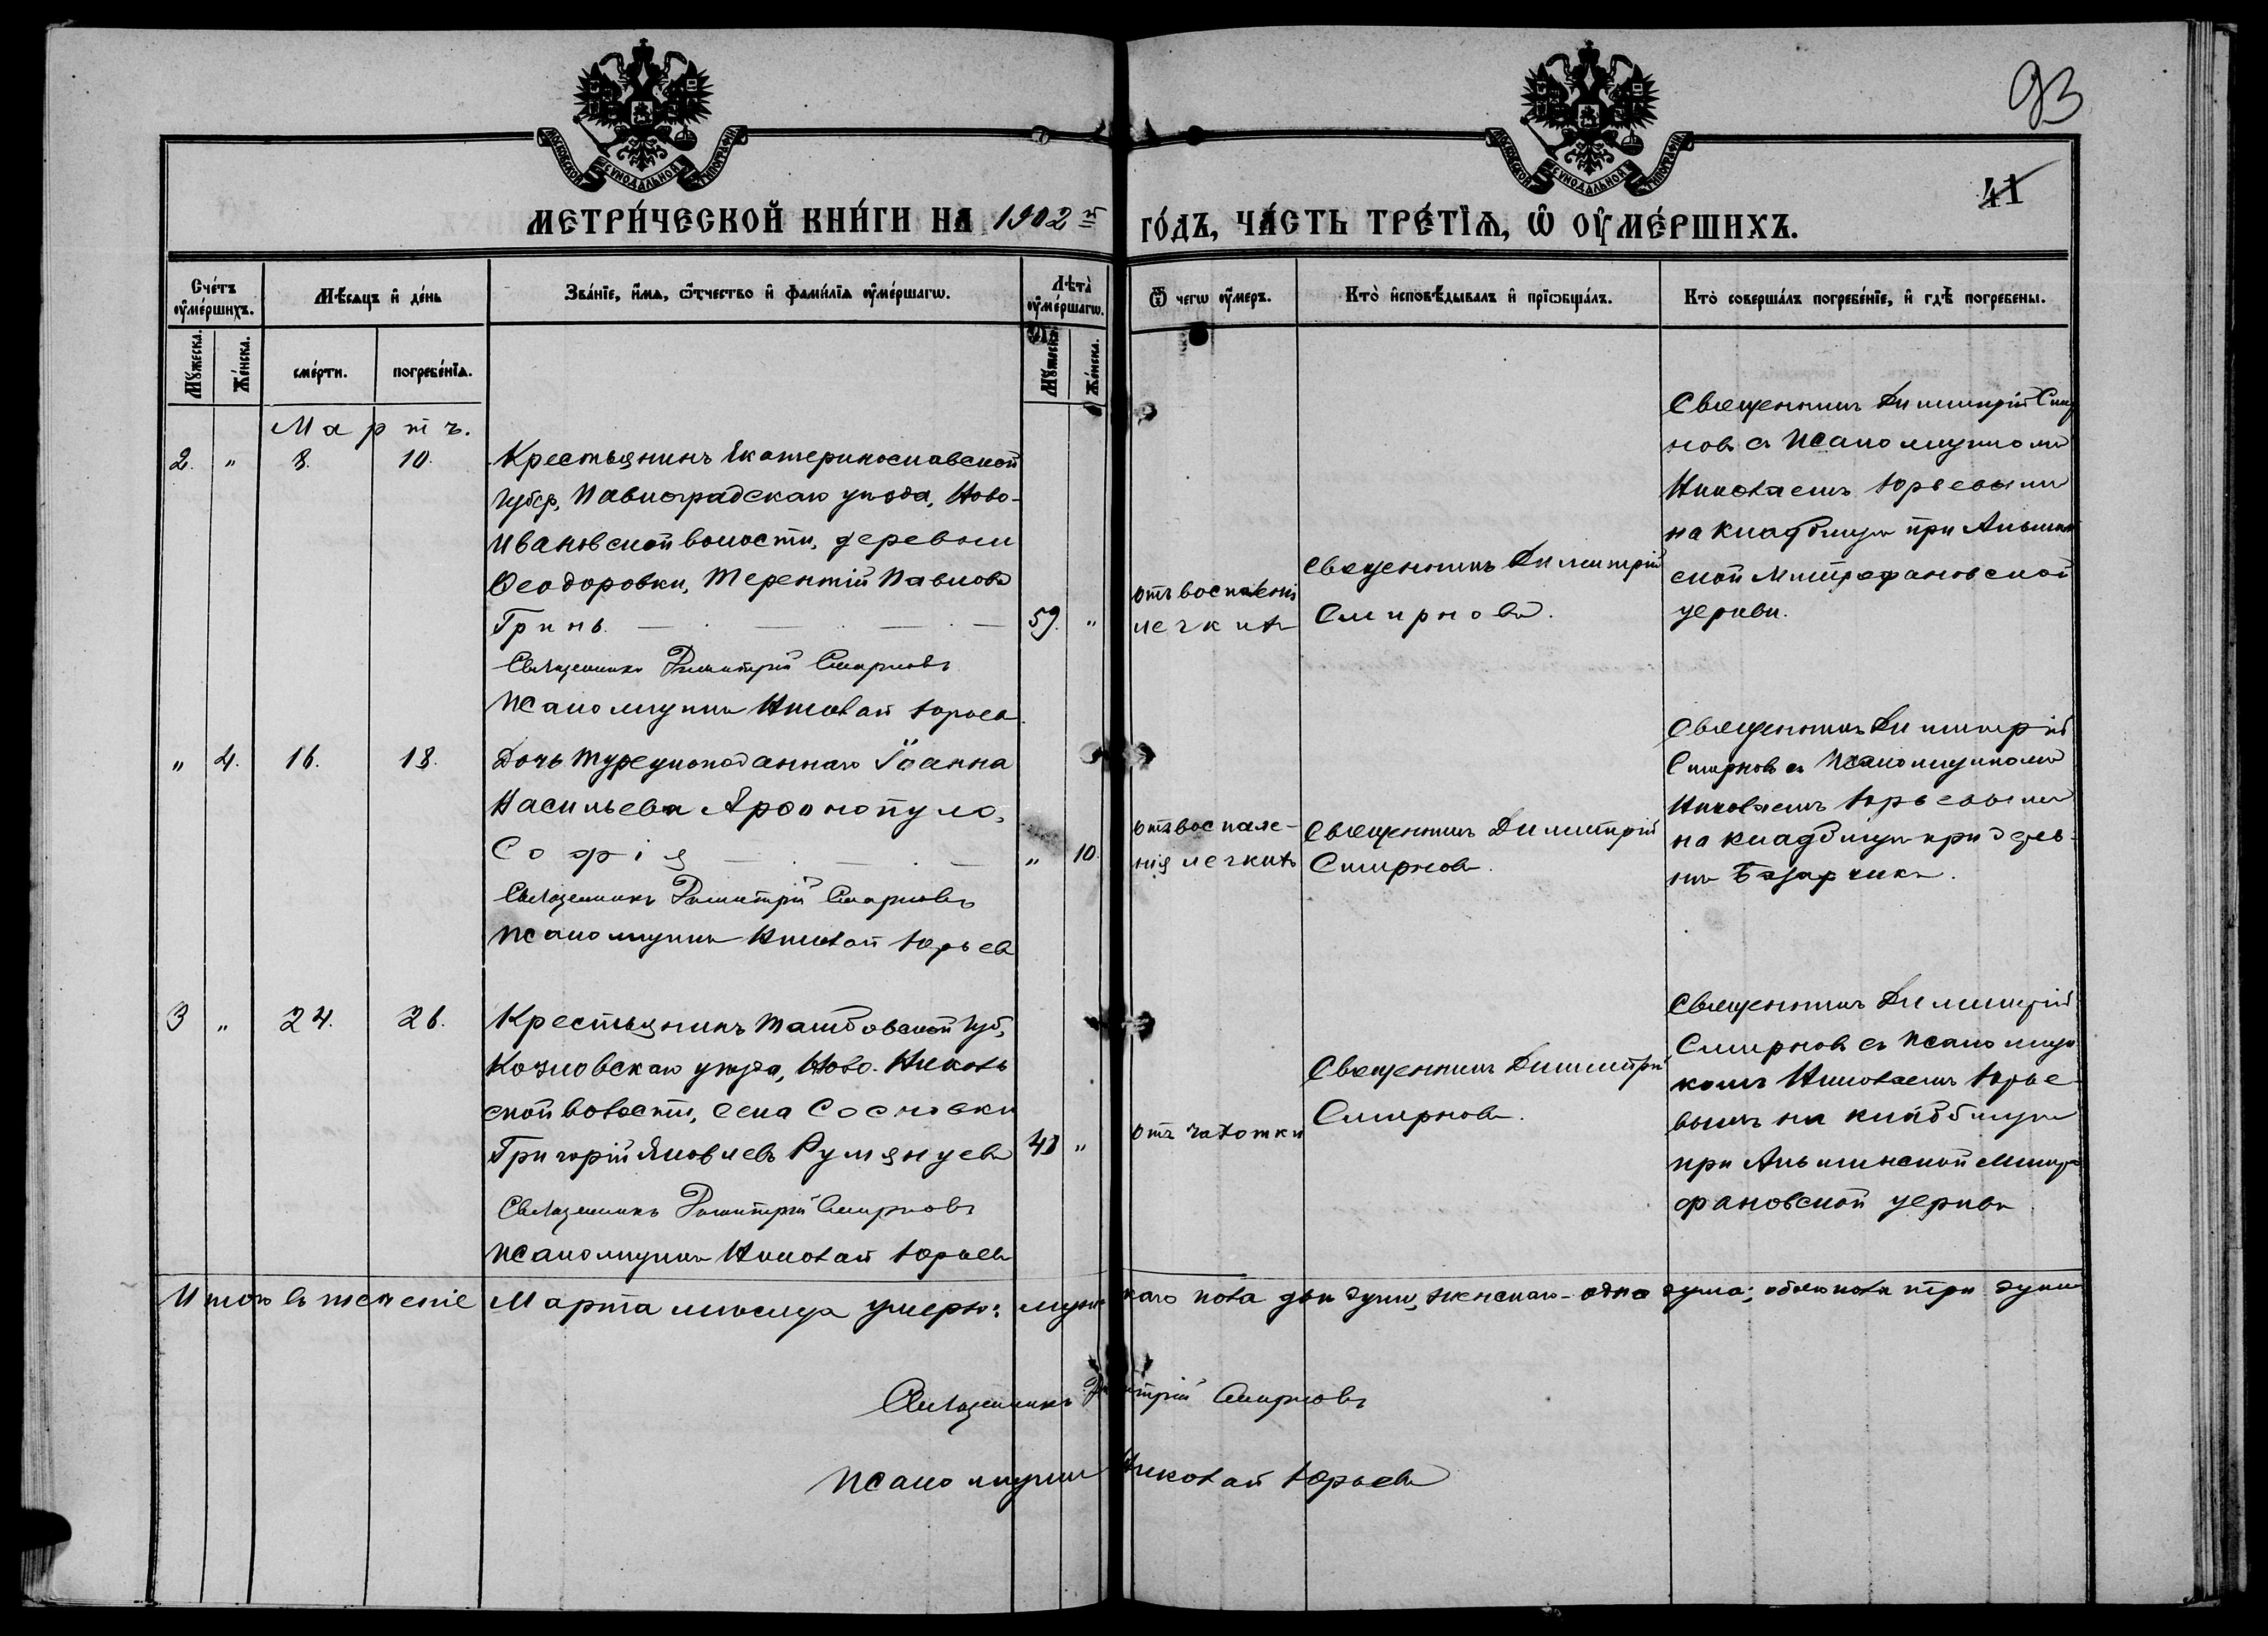 93
41
МОСКОВСКОЙ СѴНОДАЛЬНОЙ ТИПОГРАФІИ
МОСКОВСКОЙ СѴНОДАЛЬНОЙ ТИПОГРАФІИ
МЕТРИ́ЧЕСКОЙ КНИ́ГИ НА 1902 й
ГО́ДЪ, ЧА́СТЬ ТРЕ́ТІѦ, Ѡ ОУ҆МЕ́РШИХЪ.
Сче́тъ
оу҆ме́ршихъ.
Мꙋ́жеска.
Же́нска.
Мѣ́сѧцъ и҆ де́нь
сме́рти.
погребе́нїѧ.
Зва́нїе, и҆́мѧ, ѻ҆́тчество и҆ фамилїѧ оу҆ме́ршагѡ.
Лѣта̀
оу҆ме́ршагѡ.
Мꙋ́жеска.
Же́нска.
Ѿ чегѡ оу҆́меръ.
Кто̀ и҆сповѣ́дывалъ и҆ прїѡбща́лъ.
Кто̀ соверша́лъ погребе́нїе, и҆ гдѣ̀ погребены.
Мартъ.
2. " 8. 10.
Крестьянинъ Екатеринославской
губер, Павлоградскаго уѣзда, Ново-
Ивановской волости, деревни
Ѳеодоровки, Терентій Павловъ
Гринь. 59. "
Священникъ Димитрій Смирновъ
Псаломщикъ Николай Юрьевъ
отъ воспаленія
легкихъ
Священникъ Димитрій
Смирновъ.
Священникъ Димитрій Смир
новъ съ Псаломщикомъ
Николаемъ Юрьевымъ
на кладбищѣ при Альмин
ской Митрофановской
церкви.
" 4. 16. 18.
Дочь турецкоподаннаго Іоанна
Васильева
Софія " 10.
Священникъ Димитрій Смирновъ
Псаломщикъ Николай Юрьевъ
отъ воспале-
нія легкихъ
Священникъ Димитрій
Смирновъ.
Священникъ Димитрій
Смирновъ съ Псаломщикомъ
Николаемъ Юрьевымъ
на кладбищѣ при дерев-
нѣ Базарчикъ.
3 " 24. 26.
Крестьянинъ Тамбовской губ,
Козловскаго уѣзда, Ново-Николь
ской волости, села Сосновки
Григорій Яковлевъ Румянцевъ "
Священникъ Димитрій Смирновъ
Псаломщикъ Николай Юрьевъ
отъ чахотки
Священникъ Димитрій
Смирновъ.
Священникъ Димитрій
Смирновъ съ Псаломщи
комъ Николаемъ Юрье
вымъ на кладбищѣ
при Альминской Митро
фановской церкви
Итого въ теченіе Марта мѣсяца умерло: мужескаго пола двѣ души, женскаго - одна душа; обоего пола три души
Священникъ Димитрій Смирновъ
Псаломщикъ Николай Юрьевъ